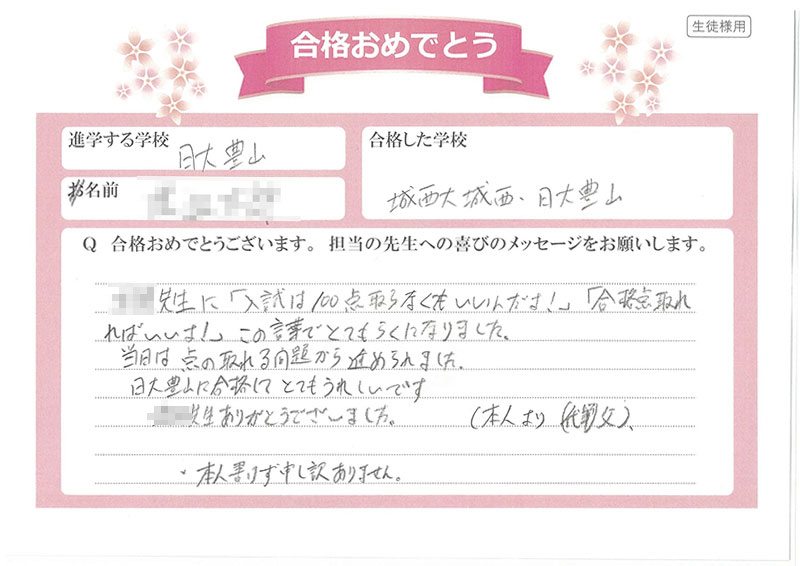 生徒様用
合格おめでとう
進学する学校
日大豊山
お名前
合格した学校
城西大城西・日大豊山
Q 合格おめでとうございます。担当の先生への喜びのメッセージをお願いします。
先生に「入試は100点取らなくもいいんだよ!」「合格点取れ
ればいいよ!」この言葉でとてもらくになりました。
当日は点の取れる問題から進められました。
日大豊山に合格してとてもうれしいです
先生ありがとうございました。 (本人より (代筆父)、
・本人書けず申し訳ありません。